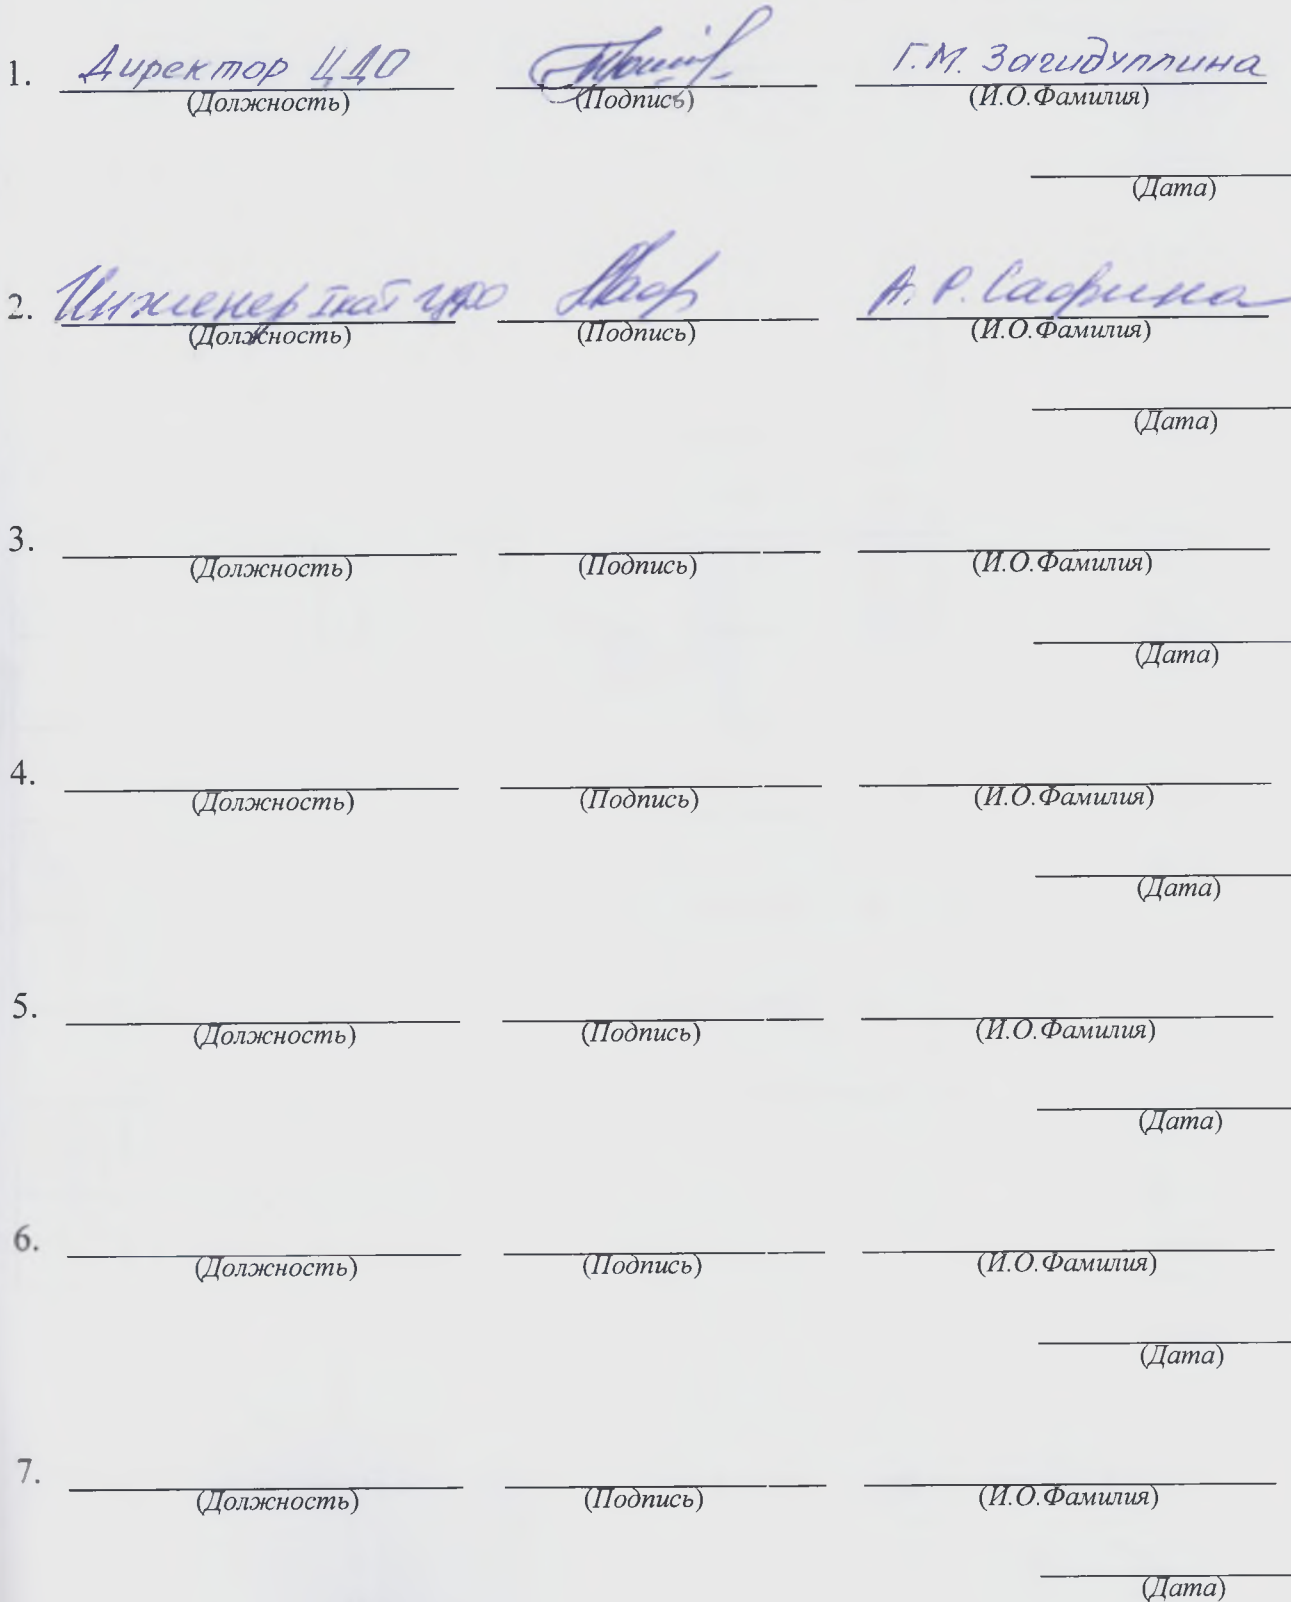 1. Директор ЦДО Г.М. Загидуллина
(Должность) (Подпись) (И.О.Фамилия)
(Дата)
2. Инженер Iкат ЦДО А.Р. Сафина
(Должность) (Подпись) (И.О.Фамилия)
(Дата)
3.
(Должность) (Подпись) (И.О.Фамилия)
(Дата)
4.
(Должность) (Подпись) (И.О.Фамилия)
(Дата)
5.
(Должность) (Подпись) (И.О.Фамилия)
(Дата)
6.
(Должность) (Подпись) (И.О.Фамилия)
(Дата)
7.
(Должность) (Подпись) (И.О.Фамилия)
(Дата)